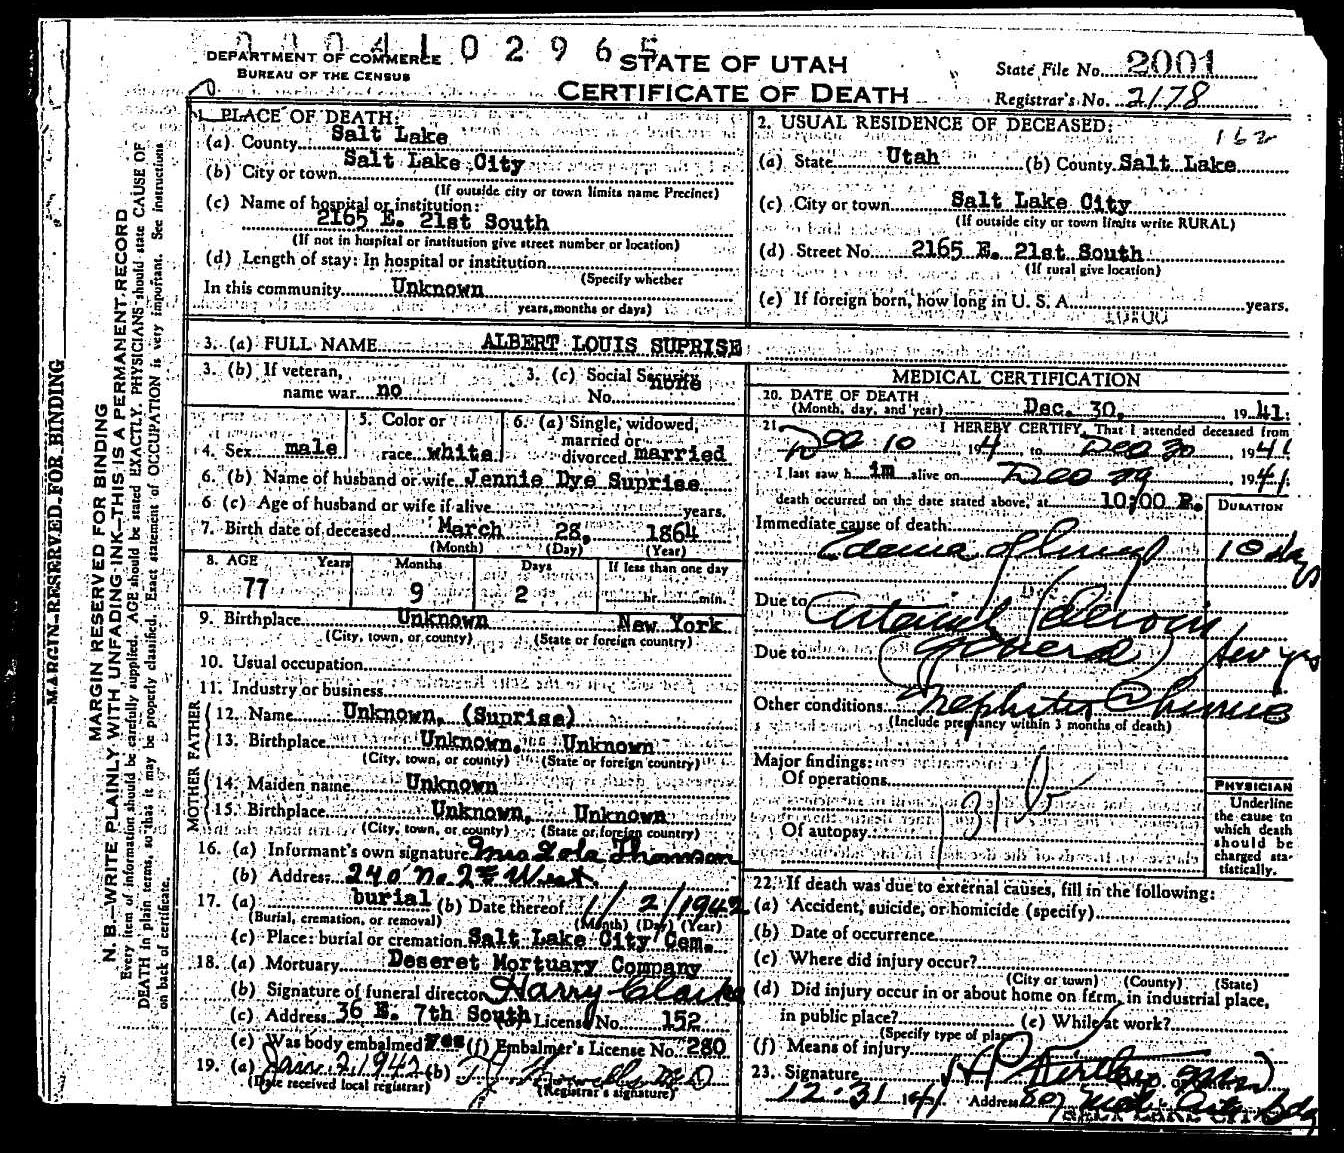 0004102965
DEPARTMENT OF COMMERCE
BUREAU OF THE CENSUS
STATE OF UTAH
CERTIFICATE OF DEATH
State File No. 2001
Registrar's No. 2178
1. PLACE OF DEATH:
(a) County Salt Lake
(b) City or town Salt Lake City
(If outside city or town limits name Precinct)
(c) Name of hospital or institution:
2165 E. 21st South
(If not in hospital or institution give street number or location)
(d) Length of stay: In hospital or institution
(Specify whether
In this community Unknown
years, months or days)
2. USUAL RESIDENCE OF DECEASED:
162
(a) State Utah (b) County Salt Lake
(c) City or town Salt Lake City
(If outside city or town limits write RURAL)
(d) Street No. 2165 E. 21st South
(If rural give location)
(e) If foreign born, how long in U. S. A. years.
10:00
3. (a) FULL NAME ALBERT LOUIS SUPRISE
3. (b) If veteran, name war no
3. (c) Social Security No. none
4. Sex male
5. Color or race white
6. (a) Single, widowed, married or divorced married
6. (b) Name of husband or wife Jennie Dye Suprise
6 (c) Age of husband or wife if alive years.
7. Birth date of deceased March 28, 1864
(Month) (Day) (Year)
8. AGE Years Months Days If less than one day
77 9 2 hr. min.
9. Birthplace Unknown New York
(City, town, or county) (State or foreign country)
10. Usual occupation
11. Industry or business
FATHER
12. Name Unknown, (Suprise)
13. Birthplace Unknown, Unknown
(City, town, or county) (State or foreign country)
MOTHER
14. Maiden name Unknown
15. Birthplace Unknown, Unknown
(City, town, or county) (State or foreign country)
16. (a) Informant's own signature Mrs Lola Thomson
(b) Address 240 No. 2nd West
17. (a) burial (b) Date thereof 1/2/1942
(Burial, cremation, or removal) (Month) (Day) (Year)
(c) Place: burial or cremation Salt Lake City Cem.
18. (a) Mortuary Deseret Mortuary Company
(b) Signature of funeral director Harry Clarke
(c) Address 36 E. 7th South License No. 152
(e) Was body embalmed yes (f) Embalmer's License No. 280
19. (a) Jan. 2, 1942 (b)
(Date received local registrar) (Registrar's signature)
MEDICAL CERTIFICATION
20. DATE OF DEATH
(Month, day, and year) Dec. 30, 1941.
21. I HEREBY CERTIFY, That I attended deceased from
Dec 10 194 to Dec 30, 1941
I last saw him alive on Dec 29 1941.
death occurred on the date stated above, at 10:00 P.
DURATION
Immediate cause of death:
Edema of Lungs 10 days
Due to Arterial Sclerosis
Due to (General) few yrs
Other conditions Nephritis Chronic
(Include pregnancy within 3 months of death)
Major findings:
Of operations
131b
Of autopsy
PHYSICIAN
Underline
the cause to
which death
should be
charged sta-
tistically.
22. If death was due to external causes, fill in the following:
(a) Accident, suicide, or homicide (specify)
(b) Date of occurrence
(c) Where did injury occur?
(City or town) (County) (State)
(d) Did injury occur in or about home on farm, in industrial place,
in public place? (e) While at work?
(Specify type of place)
(f) Means of injury
23. Signature
12-31 1941 Address
SALT LAKE CITY
MARGIN RESERVED FOR BINDING
MARGIN RESERVED FOR BINDING
N. B.—WRITE PLAINLY WITH UNFADING INK—THIS IS A PERMANENT RECORD
Every item of information should be carefully supplied. AGE should be stated EXACTLY. PHYSICIANS should state CAUSE OF
DEATH in plain terms, so that it may be properly classified. Exact statement of OCCUPATION is very important. See instructions
on back of certificate.